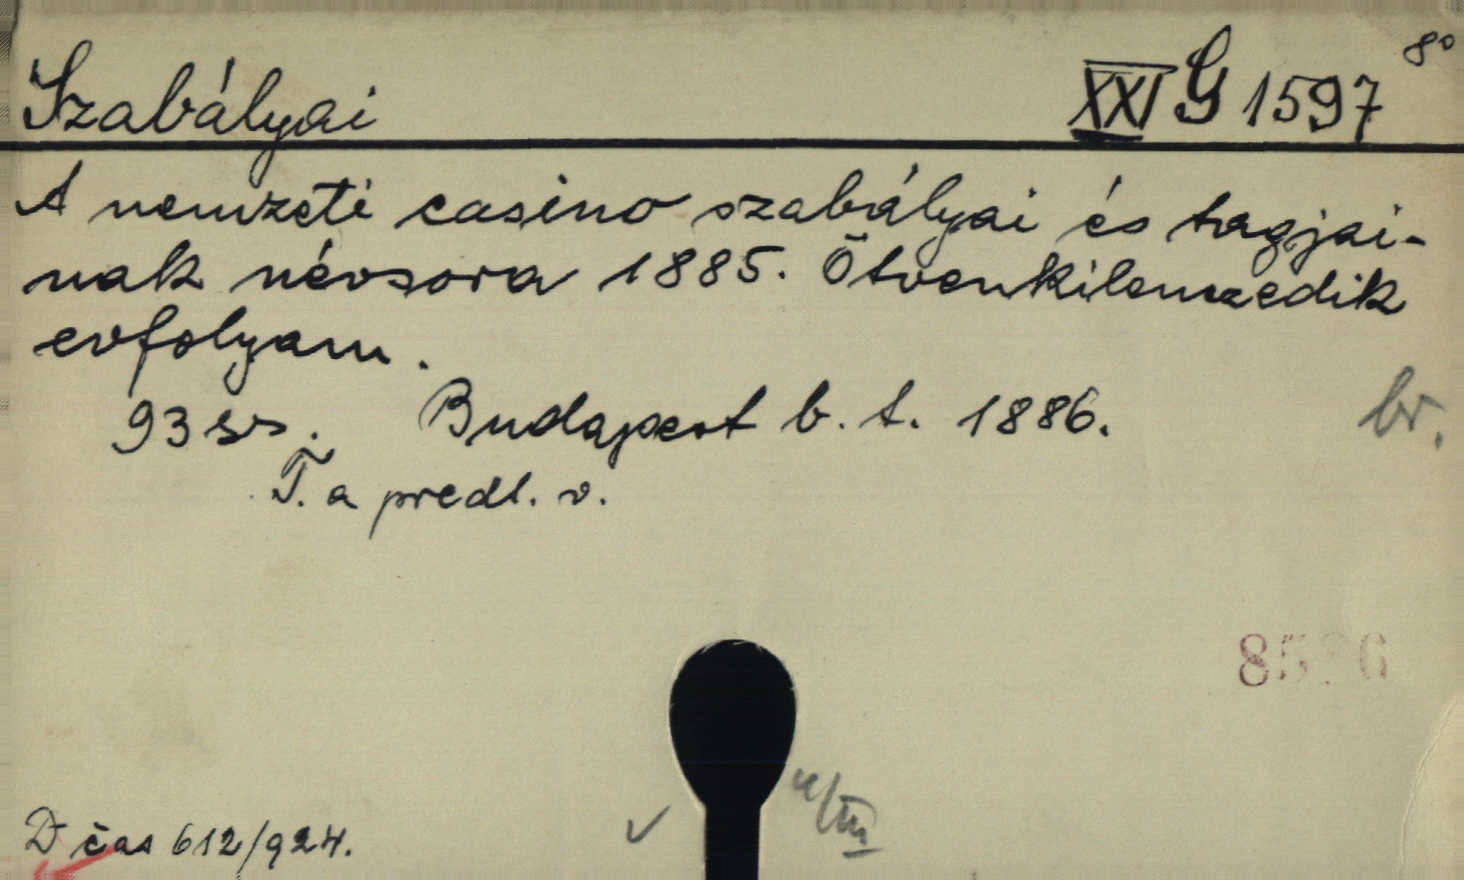 Szabályai XXI G 1597 8°
A nemzeti casino szabályai és tagjai-
nak névsora 1885. Ötvenkilenczedik
evfolyam.
93 ss. Budapest b. t. 1886. br.
T. a predl. v.
D čas 612/924.